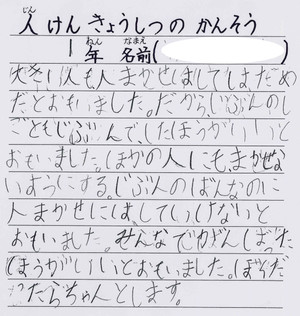 人けんきょうしつのかんそう
じん
1年 名前( )
ねん なまえ
人まかせはしてはだめ
だとおもいました。だから、じぶんのし
ごともじぶんで、したほうがいいと
おもいました。ほかの人にもまかせな
いようにする。じぶんのばんなのに
人まかせにはしていけないと
おもいました。みんなでがんばった
ほうがいいとおもいました。ぼくだ
ったらちゃんとします。